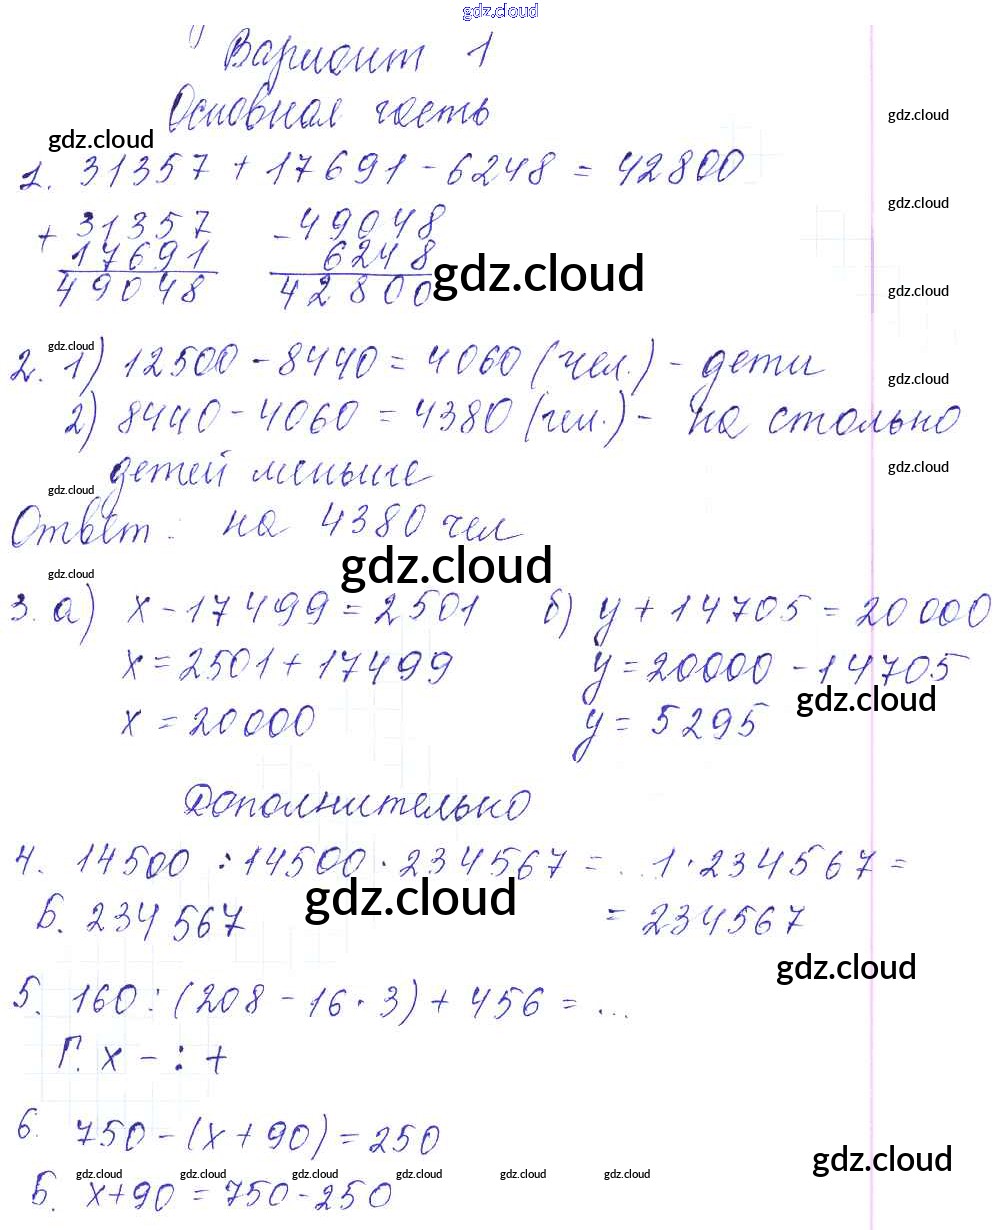 gdz.cloud
Вариант 1
Основная часть
gdz.cloud
gdz.cloud
1. 31357 + 17691 - 6248 = 42800
gdz.cloud
+ 31357 - 49048
17691 6248
gdz.cloud
49048 42800
gdz.cloud
gdz.cloud
2. 1) 12500 - 8440 = 4060 (чел.) - дети
gdz.cloud
2) 8440 - 4060 = 4380 (чел.) - на столько
детей меньше
gdz.cloud
gdz.cloud
Ответ: на 4380 чел
gdz.cloud
gdz.cloud
3. а) x - 17499 = 2501 б) y + 14705 = 20000
x = 2501 + 17499 y = 20000 - 14705
gdz.cloud
x = 20000 y = 5295
Дополнительно
4. 14500 : 14500 · 234567 = ... 1 · 234567 =
gdz.cloud
Б. 234567 = 234567
gdz.cloud
5. 160 : (208 - 16 · 3) + 456 = ...
Г. x - : +
6. 750 - (x + 90) = 250
gdz.cloud
gdz.cloud gdz.cloud gdz.cloud gdz.cloud gdz.cloud gdz.cloud
Б. x + 90 = 750 - 250